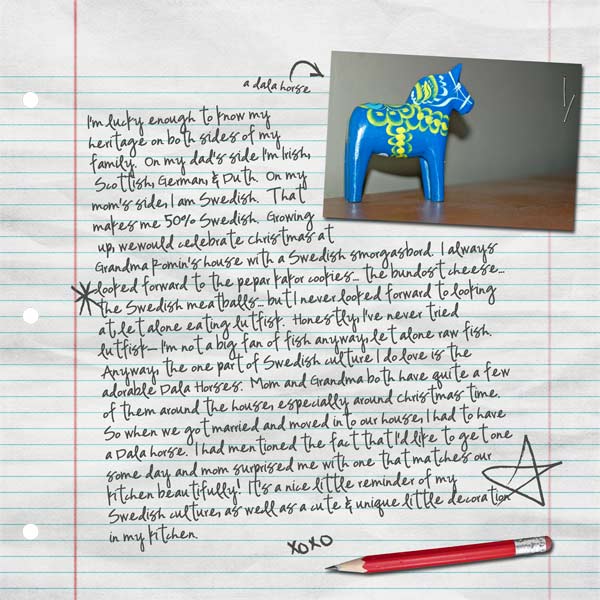 a dala horse
I'm lucky enough to know my
heritage on both sides of my
family. On my dad's side I'm Irish,
Scottish, German, & Duth. On my
mom's side, I am Swedish. That
makes me 50% Swedish. Growing
up, we would celebrate Christmas at
Grandma Romin's house with a Swedish smorgasbord. I always
looked forward to the pepar kakor cookies... the bundost cheese...
the Swedish meatballs... but I never looked forward to looking
at let alone eating lutfisk. Honestly, I've never tried
lutfisk - I'm not a big fan of fish anyway, let alone raw fish.
Anyway, the one part of Swedish culture I do love is the
adorable Dala Horses. Mom and Grandma both have quite a few
of them around the house, especially around Christmas time.
So when we got married and moved into our house, I had to have
a Dala horse. I had mentioned the fact that I'd like to get one
some day and mom surprised me with one that matches our
kitchen beautifully! It's a nice little reminder of my
Swedish culture, as well as a cute & unique little decoration
in my kitchen.
xoxo